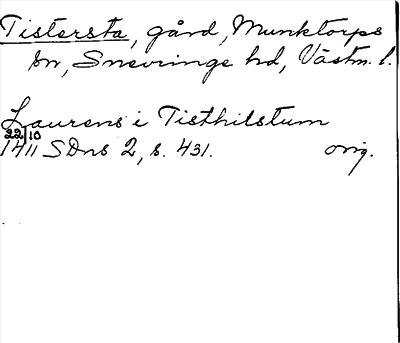 Tistersta, gård, Munktorps
sn, Snevringe hd, Västm. l.
Laurens i Tisthilstum
22/10
1411 SDns 2, s. 431. orig.